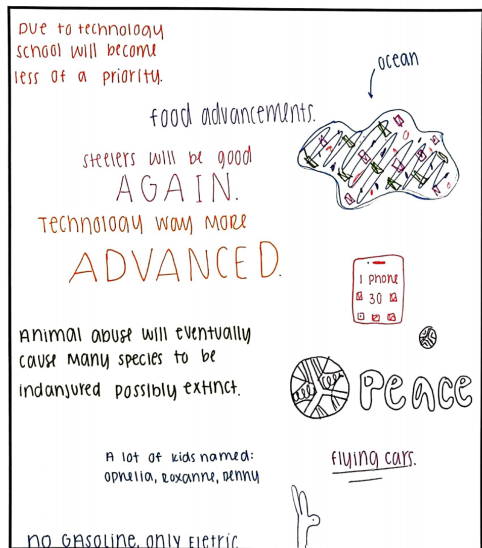 Due to technology
school will become
less of a priority.
ocean
food advancements.
steelers will be good
AGAIN.
Technology way more
ADVANCED.
1 phone
30
Animal abuse will eventually
cause many species to be
indanjured possibly extinct.
Peace
A lot of kids named:
ophelia, roxanne, Denny
flying cars.
no GASOLINE, only Eletric